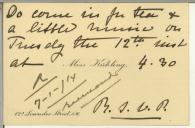 Do come in for tea &
a little music on
Tuesday the 12th inst
at 4.30
Miss Kishling.
R
7-1-/14
R.S.V.P.
Street, S.W.